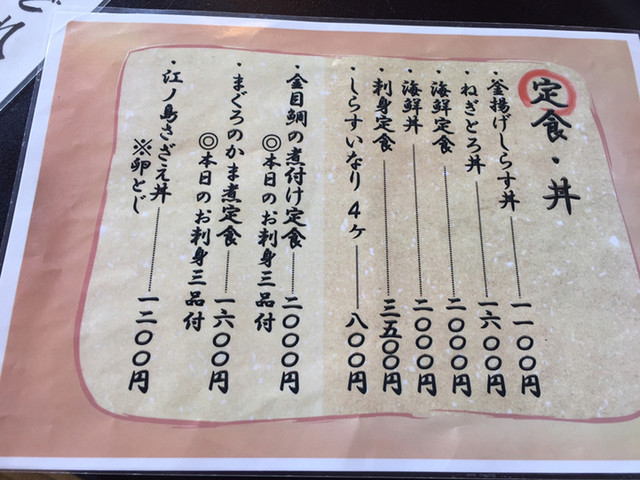 定食・丼
・釜揚げしらす丼 一一〇〇円
・ねぎとろ丼 一六〇〇円
・海鮮定食 二〇〇〇円
・海鮮丼 二〇〇〇円
・刺身定食 三五〇〇円
・しらすいなり 4ケ 八〇〇円
・金目鯛の煮付け定食 二〇〇〇円
◎本日のお刺身三品付
・まぐろのかま煮定食 一六〇〇円
◎本日のお刺身三品付
・江ノ島さざえ丼 一二〇〇円
※卵とじ